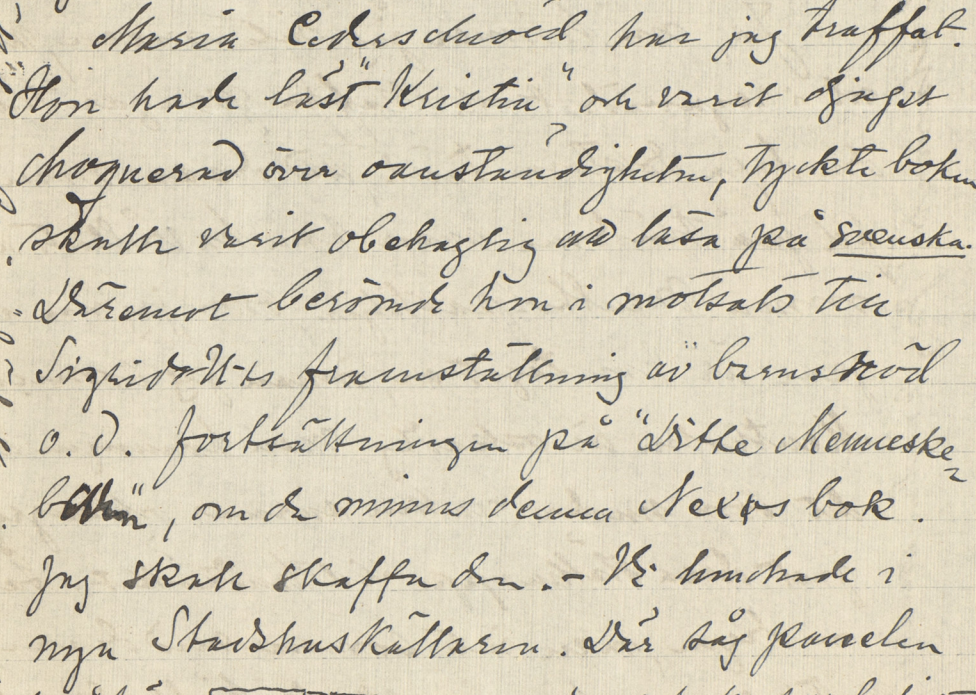 Maria Cederschiöld har jag träffat.
Hon hade läst "Kristin" och varit djupt
choquerad över oanständigheten, tyckte boken
skulle varit obehaglig att läsa på svenska.
Däremot berömde hon i motsats till
Sigrids framställning av barnsnöd
o. d. fortsättningen på "Ditte Menneske-
barn", om du minns denna Nexøs bok.
Jag skall skaffa den. - Vi lunchade i
nya Stadshuskällaren. Där såg